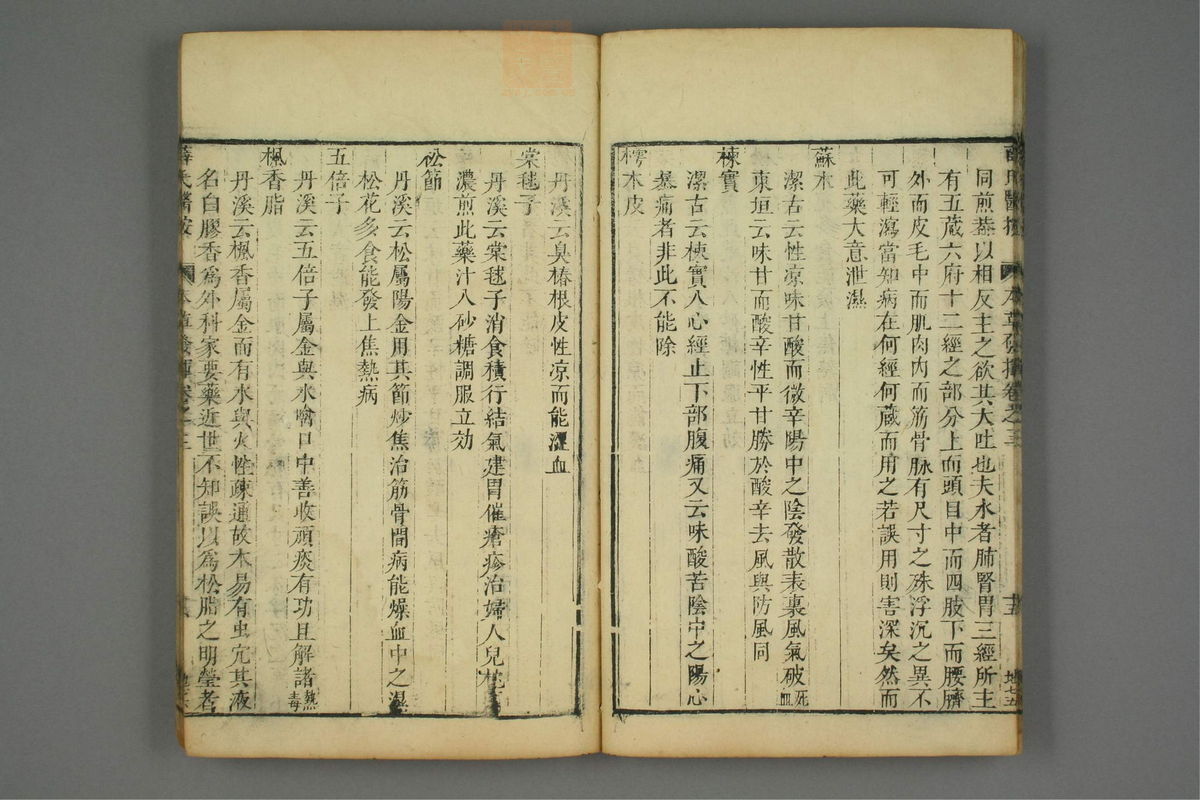 同煎蓋以相反主之欲其大吐也夫水者肺腎胃三經所主
有五蔵六府十二經之部分上而頭目中而四肢下而腰臍
外而皮毛中而肌肉内而筋骨脉有尺寸之殊浮沉之異不
可輕瀉當知病在何經何蔵而用之若誤用則害深矣然而
此藥大意泄濕
蘇木
潔古云性凉味甘酸而微辛陽中之陰發散表裏風氣破死血
東垣云味甘而酸辛性平甘勝於酸辛去風與防風同
楝實
潔古云楝實入心經止下部腹痛又云味酸苦陰中之陽心
暴痛者非此不能除
樗木皮
丹溪云臭椿根皮性凉而能澀血
棠毬子
丹溪云棠毬子消食積行結氣建胃催瘡疹治婦人兒枕
濃煎此藥汁入砂糖調服立効
松節
丹溪云松屬陽金用其節炒焦治筋骨間病能燥血中之濕
松花多食能發上焦熱病
五倍子
丹溪云五倍子屬金與水噙口中善收頑痰有功且解諸熱毒
楓香脂
丹溪云楓香屬金而有水與火性疎通故木易有虫穴其液
名白膠香爲外科家要藥近世不知誤以爲松脂之明瑩者
薛氏醫按 本草發揮卷之三